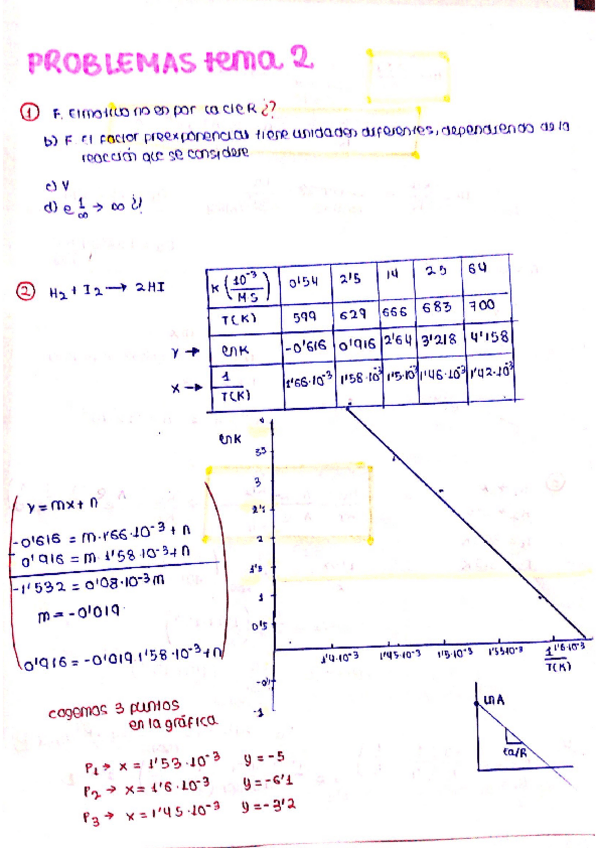 PROBLEMAS tema 2
① F. El motivo no es por la cte R ¿?
b) F. El factor preexponencial tiene unidades diferentes, dependiendo de la
reacción que se considere
c) V
d) e 1/∞ → ∞ ¿!
② H₂ + I₂ → 2HI
K (10⁻³/MS) 0'54 2'5 14 25 64
T(K) 599 629 666 683 700
Y → lnK -0'616 0'916 2'64 3'218 4'158
X → 1/T(K) 1'66·10⁻³ 1'58·10⁻³ 1'5·10⁻³ 1'46·10⁻³ 1'42·10⁻³
lnK
4
3'5
3
2'5
2
1'5
1
0'5
-1
1'4·10⁻³ 1'45·10⁻³ 1'5·10⁻³ 1'55·10⁻³ 1'6·10⁻³
1/T(K)
y = mx + n
-0'616 = m·1'66·10⁻³ + n
0'916 = m·1'58·10⁻³ + n
-1'532 = 0'08·10⁻³m
m = -0'019
0'916 = -0'019·1'58·10⁻³ + n
cogemos 3 puntos
en la gráfica
P₁ → x = 1'53·10⁻³ y = -5
P₂ → x = 1'6·10⁻³ y = -6'1
P₃ → x = 1'45·10⁻³ y = -3'2
lnA
Ea/R